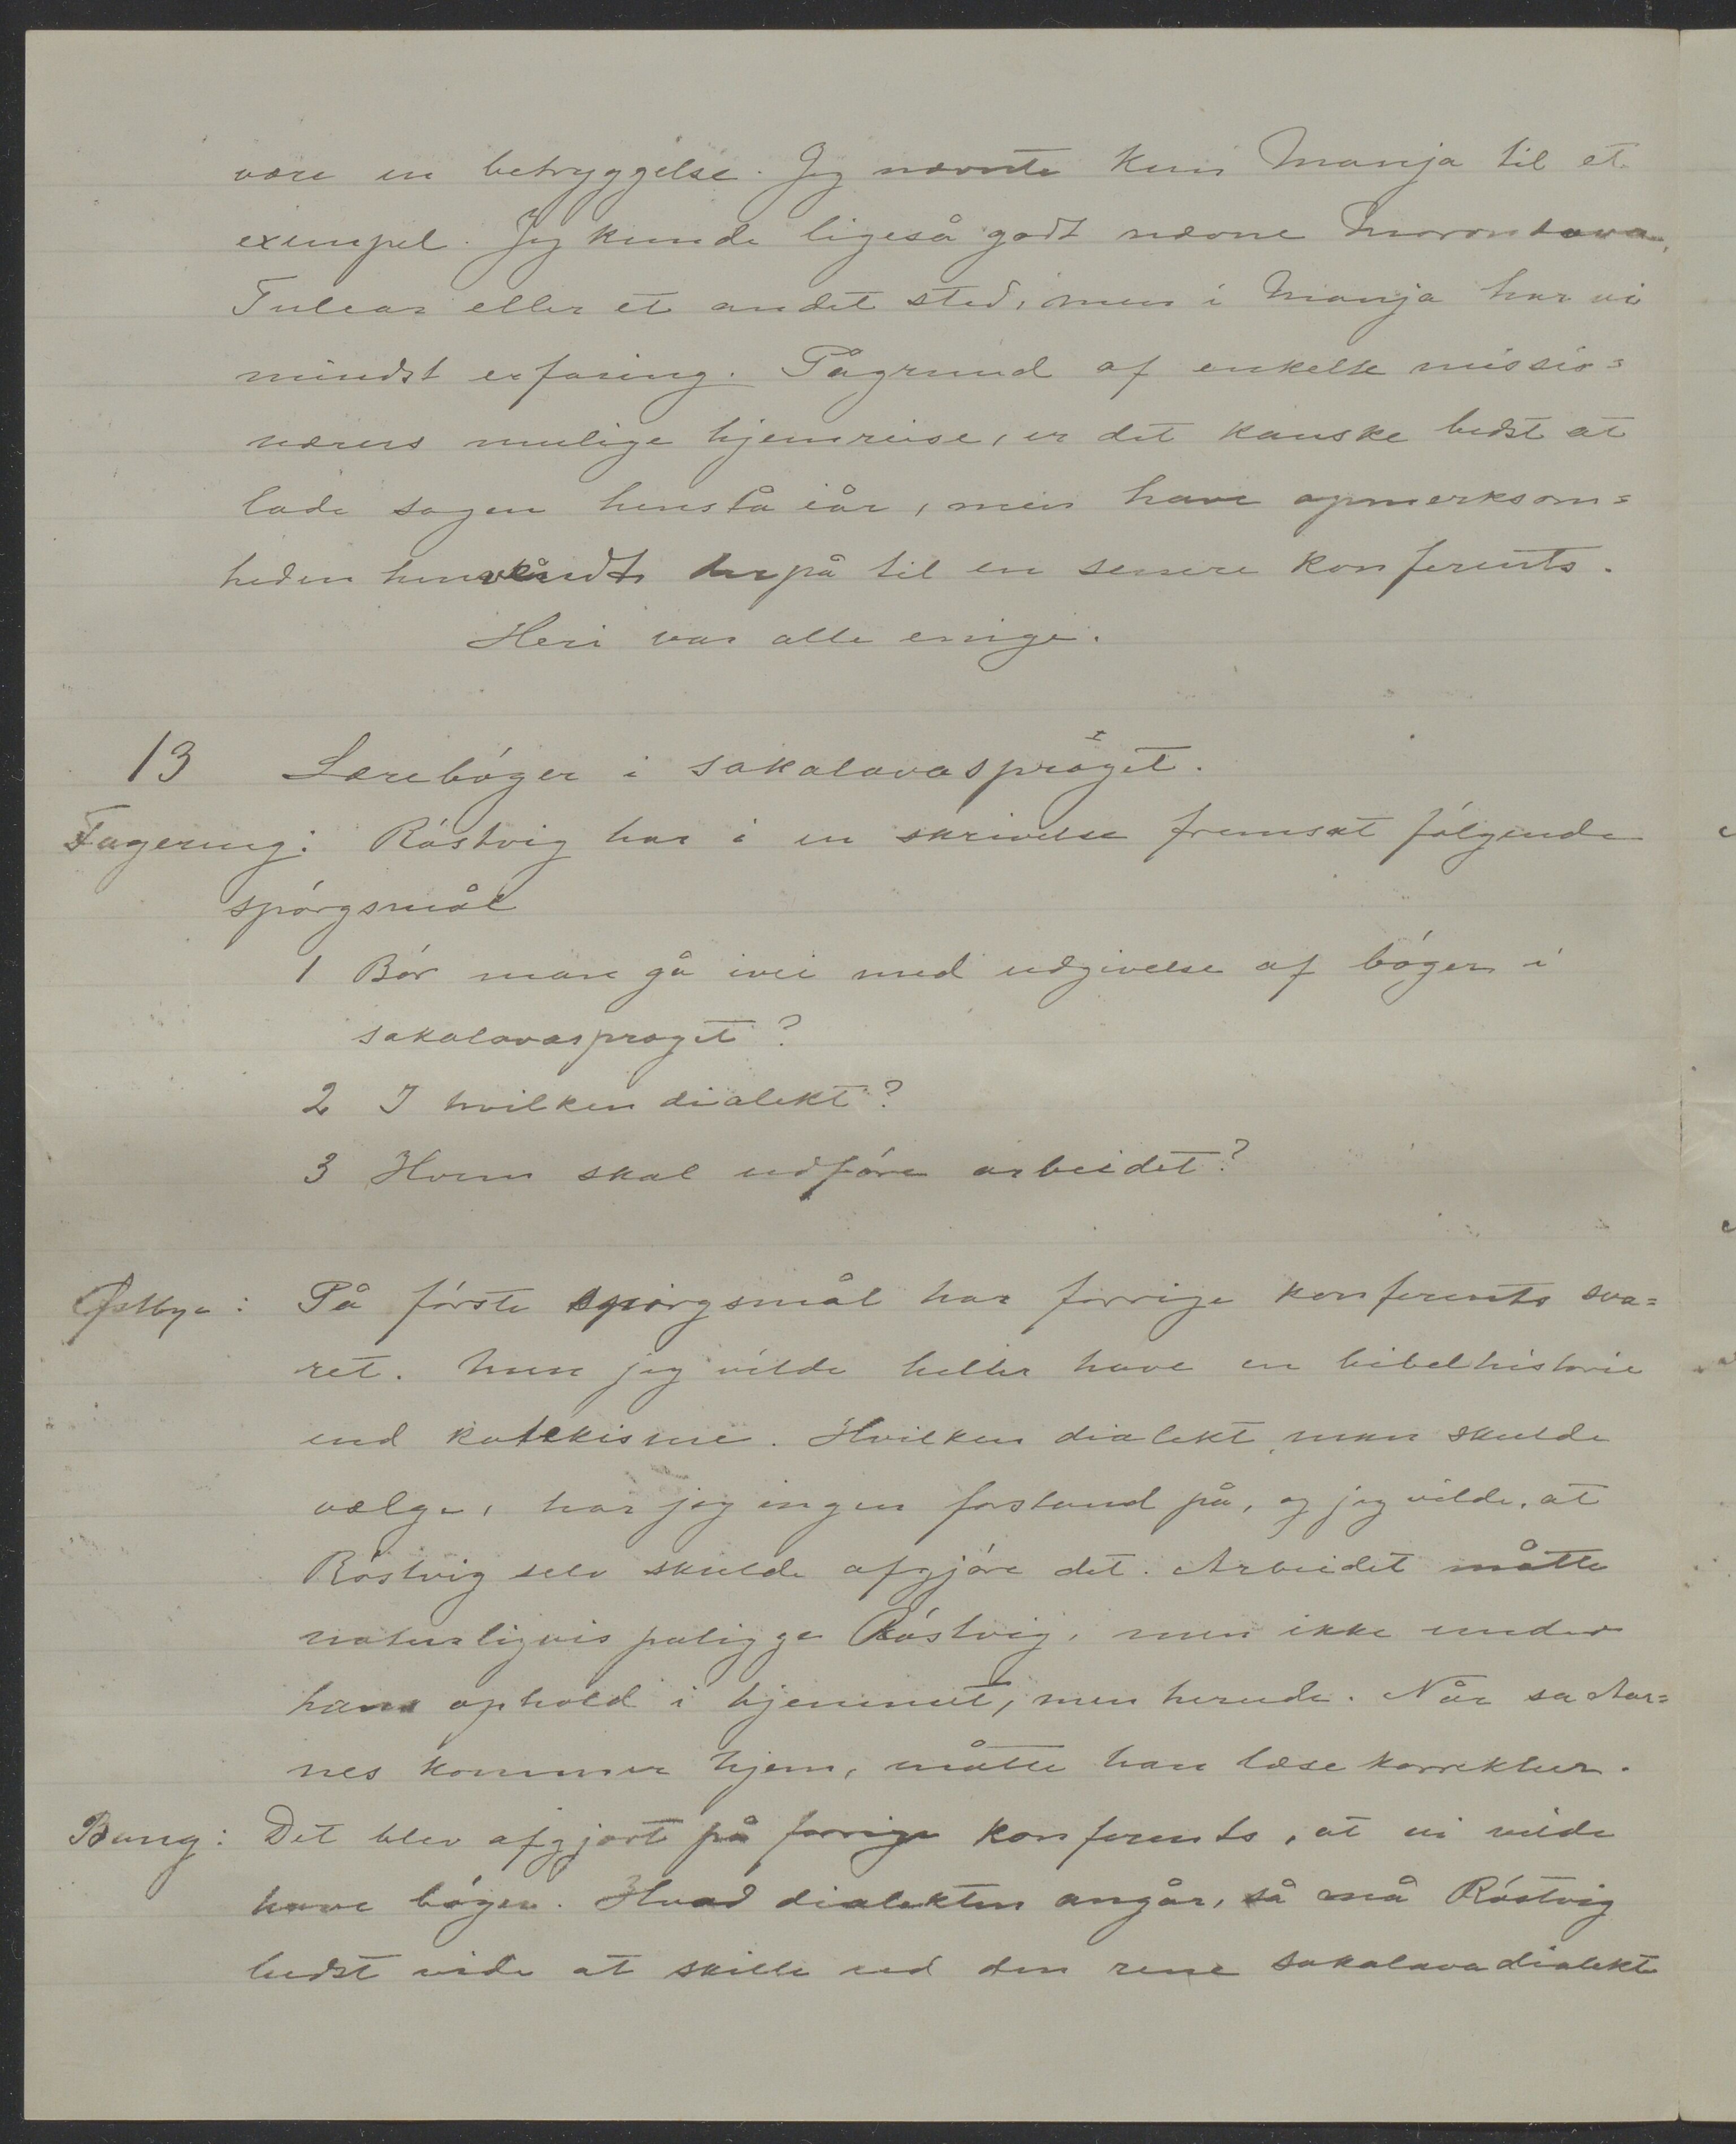 være en betryggelse. Jeg nævnte kun Manja til et
exempel. Jeg kunde ligeså godt nævne Morondava,
Tulear eller et andet sted, men i Manja har vi
mindst erfaring. Pågrund af enkelte missio=
nærers mulige hjemreise, er det kanske bedst at
lade sagen henstå iår, men have opmerksom=
heden henvendt herpå til en senere konferents.
Heri var alle enige.
13 Lærebóger i sakalavasproget.
Fagereng: Róstvig har i en skrivelse fremsat fólgende
spórgsmål
1 Bór man gå ivei med udgivelse af bóger i
sakalavasproget?
2 I hvilken dialekt?
3 Hvem skal udfóre arbeidet?
Østbye: På fórste spórgsmål har forrige konferents sva=
ret. Men jeg vilde heller have en bibelhistorie
end katekisme. Hvilken dialekt man skulde
vælge, har jeg ingen forstand på, og jeg vilde, at
Róstvig selv skulde afgjóre det. Arbeidet måtte
naturligvis paligge Róstvig, men ikke under
hans ophold i hjemmet, men herude. Når sa Aar=
nes kommer hjem, måtte han læse korrektur.
Bang: Det blev afgjort på forrige konferents, at vi vilde
have bóger. Hvad dialekten angår, så må Róstvig
bedst vide at skille ud den rene sakalavadialekt